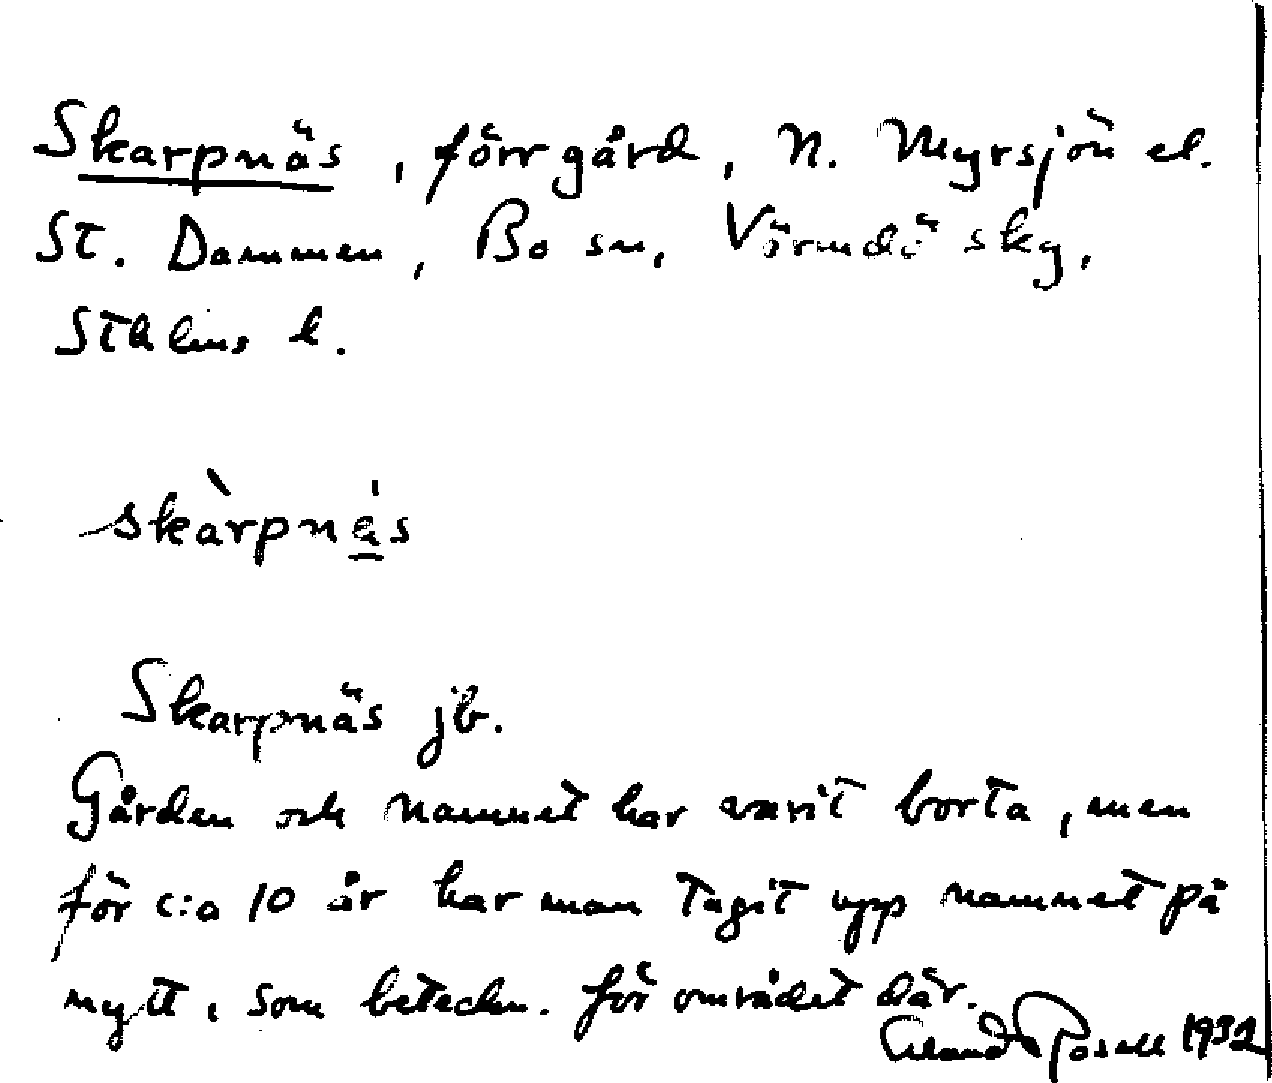 Skarpnäs, förr gård, N. Myrsjön el.
St. Dammen, Bo sn, Värmdö skg,
Sthlms l.
skàrpnä́s
Skarpnäs jb.
Gården och namnet har varit borta, men
för c:a 10 år har man tagit upp namnet på
nytt, som beteckn. för området där.
Erland Rosell 1932